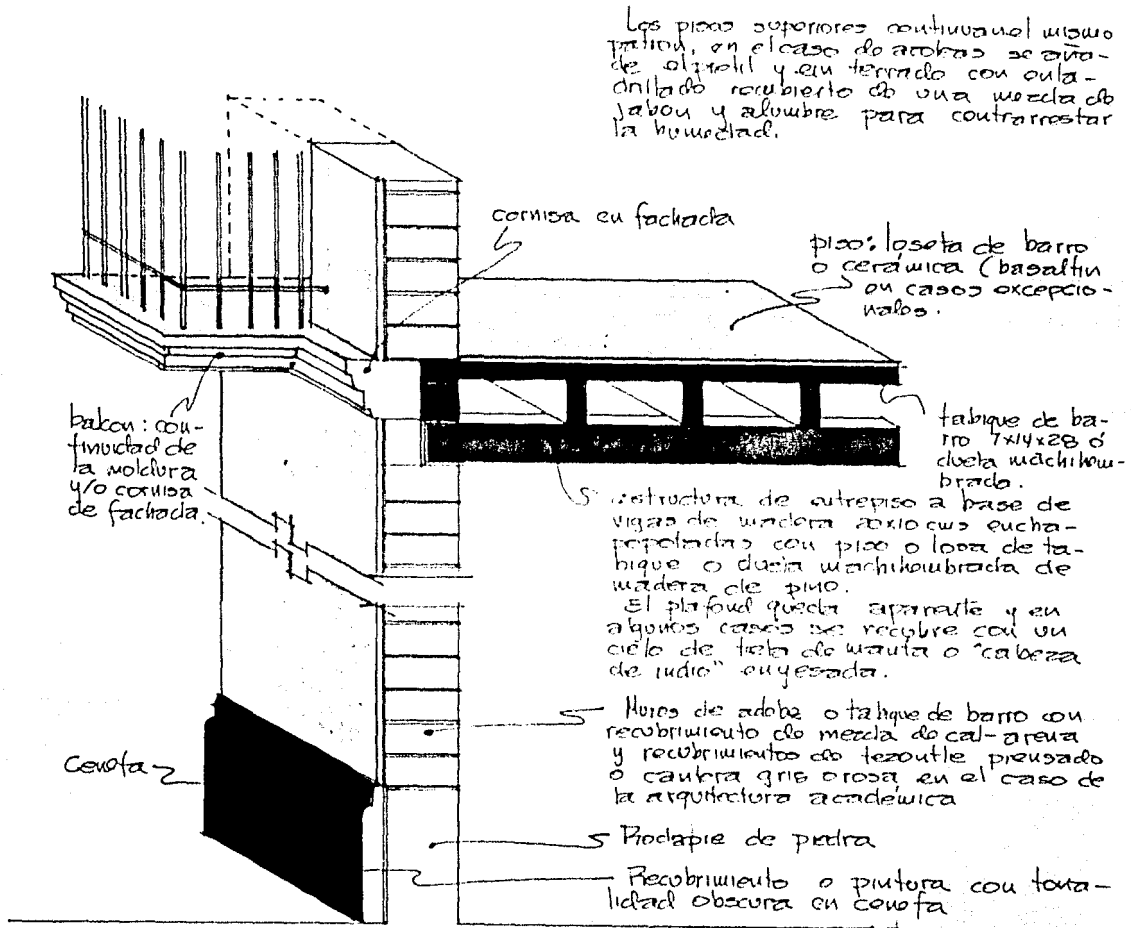 Los pisos superiores continuan el mismo
patron, en el caso de azoteas se aña-
de el pretil y un terrado con enla-
drillado recubierto de una mezcla de
jabon y alumbre para contrarrestar
la humedad.
cornisa en fachada
piso: loseta de barro
o cerámica (basaltin
en casos excepcio-
nales.
balcon: con-
tinuidad de
la moldura
y/o cornisa
de fachada.
tabique de ba-
rro 7x14x28 ó
duela machihem-
brada.
estructura de entrepiso a base de
vigas de madera 20x10 cms encha-
popotadas con piso o losa de ta-
bique o duela machihembrada de
madera de pino.
El plafond queda aparente y en
algunos casos se recubre con un
cielo de tela de manta o "cabeza
de indio" enyesada.
Muros de adobe o tabique de barro con
recubrimiento de mezcla de cal-arena
y recubrimientos de tezontle prensado
o cantera gris o rosa, en el caso de
la arquitectura académica
Cenefa
Rodapie de piedra
Recubrimiento o pintura con tona-
lidad obscura en cenefa